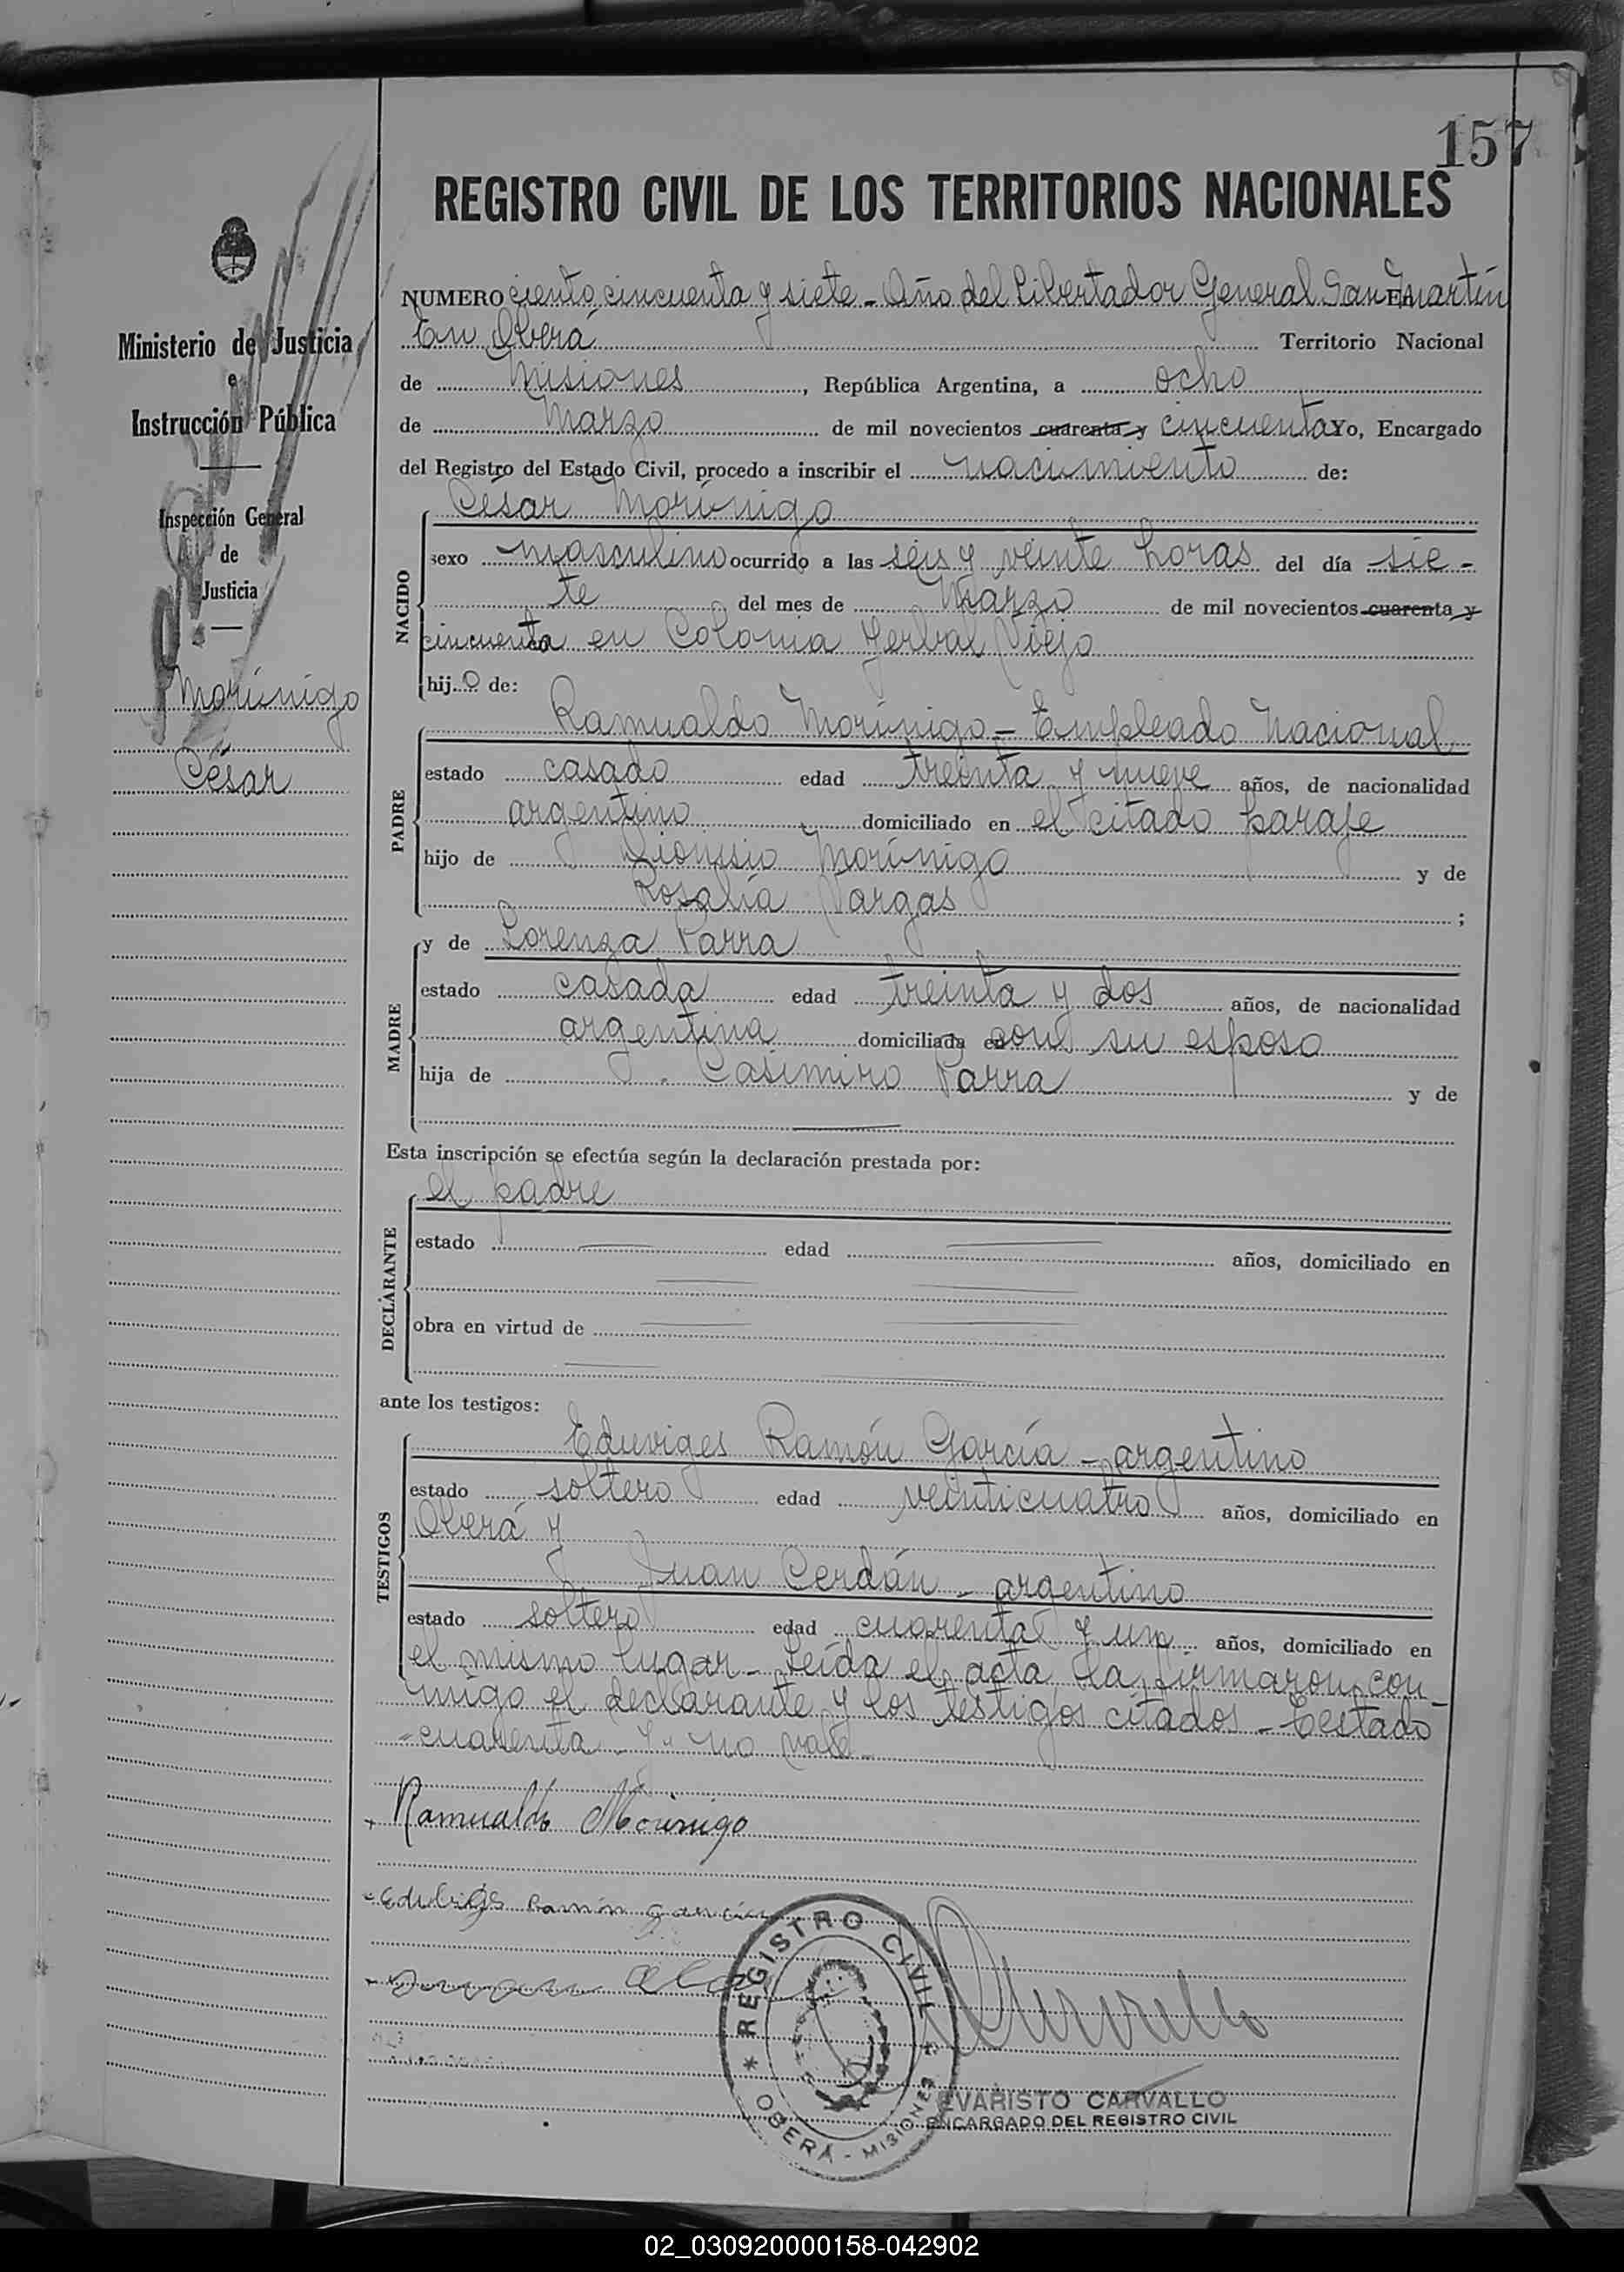 157
REGISTRO CIVIL DE LOS TERRITORIOS NACIONALES
NUMERO ciento cincuenta y siete - Año del Libertador General San Martín
En Oberá Territorio Nacional
de Misiones, República Argentina, a ocho
de Marzo de mil novecientos cuarenta y cincuenta Yo, Encargado
del Registro del Estado Civil, procedo a inscribir el nacimiento de:
César Morínigo
NACIDO
sexo masculino ocurrido a las seis y veinte horas del día sie-
te del mes de Marzo de mil novecientos cuarenta y
cincuenta en Colonia Yerbal Viejo
hijo de:
Ramualdo Morínigo - Empleado Nacional
PADRE
estado casado edad treinta y nueve años, de nacionalidad
argentino domiciliado en el citado paraje
hijo de Dionisio Morínigo y de
Rosalía Vargas ;
y de Lorenza Parra
MADRE
estado casada edad treinta y dos años, de nacionalidad
argentina domiciliada en con su esposo
hija de Casimiro Parra y de
Esta inscripción se efectúa según la declaración prestada por:
el padre
DECLARANTE
estado edad años, domiciliado en
obra en virtud de
ante los testigos:
Eduviges Ramón García - argentino
TESTIGOS
estado soltero edad veinticuatro años, domiciliado en
Oberá y
Juan Cerdán - argentino
estado soltero edad cuarenta y un años, domiciliado en
el mismo lugar - Leída el acta la firmaron con-
migo el declarante y los testigos citados - Testado
-cuarenta y- no vale-
Ramualdo Morinigo
Eduviges Ramón García
REGISTRO CIVIL
OBERÁ - MISIONES
EVARISTO CARVALLO
ENCARGADO DEL REGISTRO CIVIL
Ministerio de Justicia
e
Instrucción Pública
Inspección General
de
Justicia
Morínigo
César
02_030920000158-042902